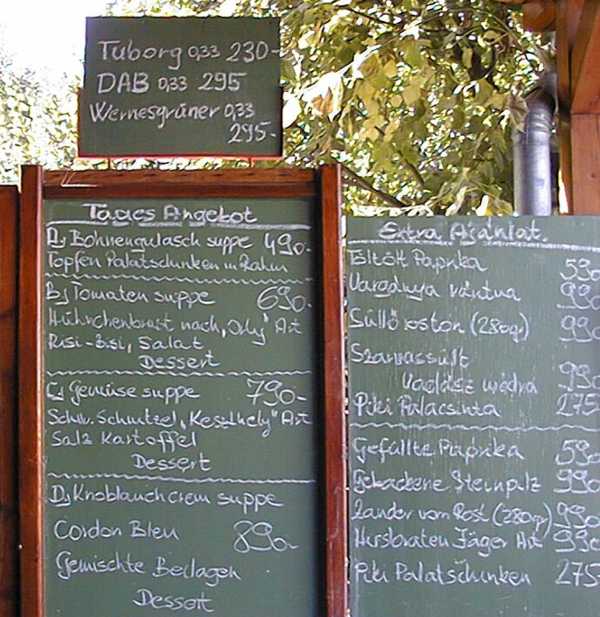 Tuborg 0,33 230-
DAB 0,33 295
Wernesgrüner 0,33
295-
Tages Angebot
A, Bohnengulasch suppe 490-
Topfen Palatschinken m Rahm
B, Tomaten suppe 690-
Hühnchenbrust nach "Orly" Art
Risi-Bisi, Salat
Dessert
C, Gemüse suppe 790-
Schw. Schnitzel "Keszthely" Art
Salz Kartoffel
Dessert
D, Knoblauchcrem suppe
Cordon Bleu 890-
Gemischte Beilagen
Dessert
Extra Ajánlat.
Töltött Paprika 590
Varadnya rántva 990
Süllő roston (280gr) 990
Szarvassült
vadász módra 990
Piki Palacsinta 275
Gefüllte Paprika 590
Gebackene Steinpilz 990
Zander vom Rost (280gr) 990
Hirschbraten Jäger Art 990
Piki Palatschinken 275